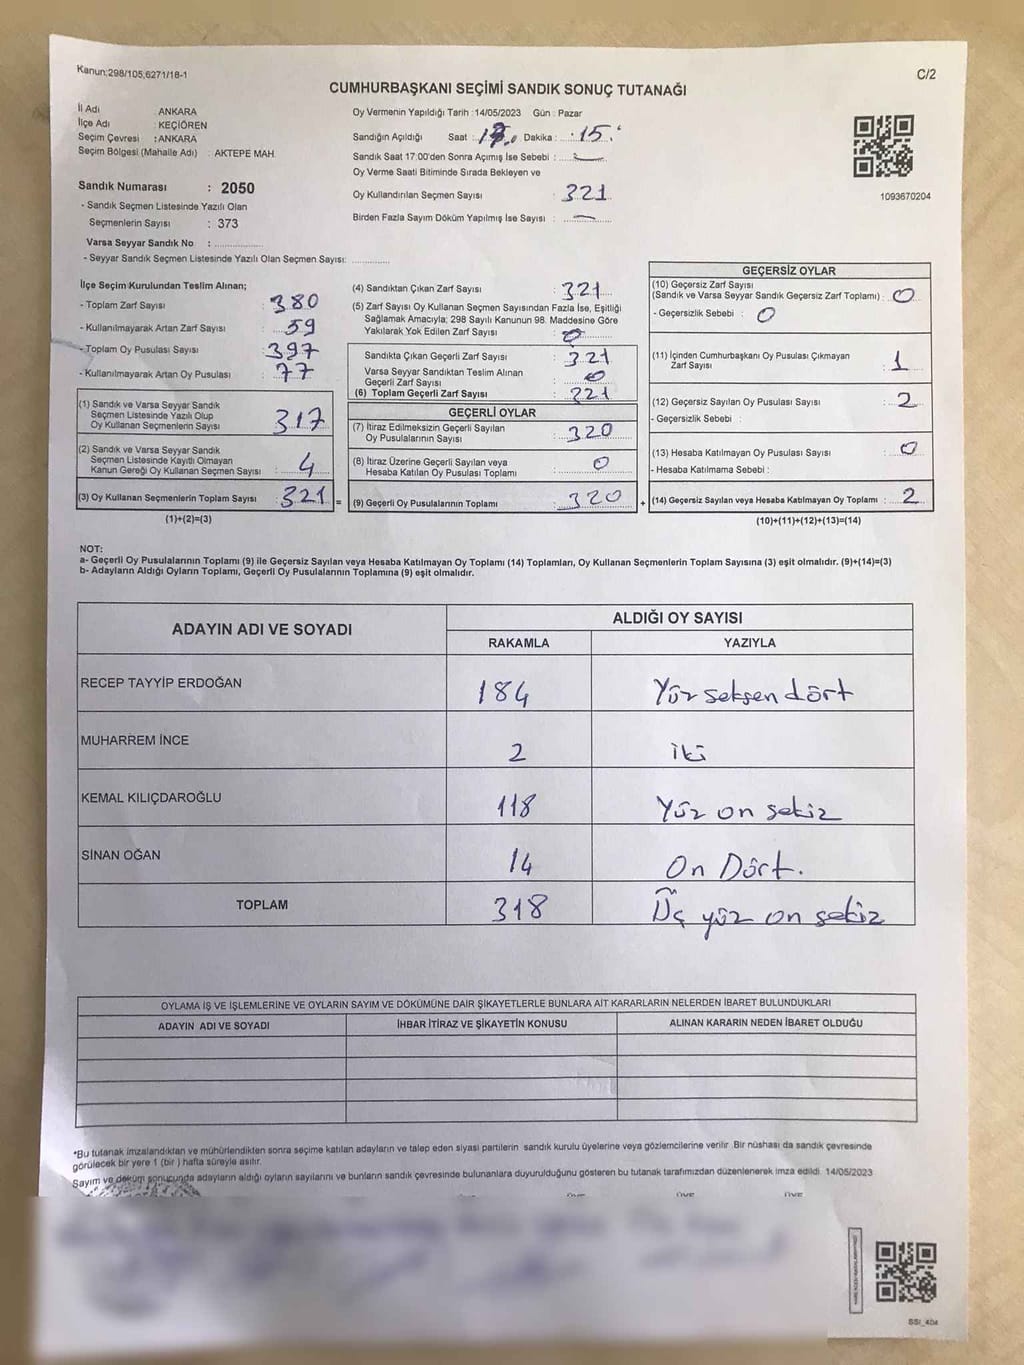 Kanun:298/105,6271/18-1
C/2
CUMHURBAŞKANI SEÇİMİ SANDIK SONUÇ TUTANAĞI
İl Adı : ANKARA
İlçe Adı : KEÇİÖREN
Seçim Çevresi : ANKARA
Seçim Bölgesi (Mahalle Adı) : AKTEPE MAH.
Oy Vermenin Yapıldığı Tarih :14/05/2023 Gün : Pazar
Sandığın Açıldığı Saat : Dakika : 15
Sandık Saat 17:00'den Sonra Açımış İse Sebebi :
Oy Verme Saati Bitiminde Sırada Bekleyen ve
Oy Kullandırılan Seçmen Sayısı : 321
Birden Fazla Sayım Döküm Yapılmış İse Sayısı : —
1093670204
Sandık Numarası : 2050
- Sandık Seçmen Listesinde Yazılı Olan
Seçmenlerin Sayısı : 373
Varsa Seyyar Sandık No :
- Seyyar Sandık Seçmen Listesinde Yazılı Olan Seçmen Sayısı:
İlçe Seçim Kurulundan Teslim Alınan;
- Toplam Zarf Sayısı : 380
- Kullanılmayarak Artan Zarf Sayısı : 59
- Toplam Oy Pusulası Sayısı : 397
- Kullanılmayarak Artan Oy Pusulası : 77
(1) Sandık ve Varsa Seyyar Sandık
Seçmen Listesinde Yazılı Olup
Oy Kullanan Seçmenlerin Sayısı : 317
(2) Sandık ve Varsa Seyyar Sandık
Seçmen Listesinde Kayıtlı Olmayan
Kanun Gereği Oy Kullanan Seçmen Sayısı : 4
(3) Oy Kullanan Seçmenlerin Toplam Sayısı : 321 =
(1)+(2)=(3)
(4) Sandıktan Çıkan Zarf Sayısı : 321
(5) Zarf Sayısı Oy Kullanan Seçmen Sayısından Fazla İse, Eşitliği
Sağlamak Amacıyla; 298 Sayılı Kanunun 98. Maddesine Göre
Yakılarak Yok Edilen Zarf Sayısı : 0
Sandıkta Çıkan Geçerli Zarf Sayısı : 321
Varsa Seyyar Sandıktan Teslim Alınan
Geçerli Zarf Sayısı : 0
(6) Toplam Geçerli Zarf Sayısı : 321
GEÇERLİ OYLAR
(7) İtiraz Edilmeksizin Geçerli Sayılan
Oy Pusulalarının Sayısı : 320
(8) İtiraz Üzerine Geçerli Sayılan veya
Hesaba Katılan Oy Pusulası Toplamı : 0
(9) Geçerli Oy Pusulalarının Toplamı : 320 +
GEÇERSİZ OYLAR
(10) Geçersiz Zarf Sayısı
(Sandık ve Varsa Seyyar Sandık Geçersiz Zarf Toplamı) : 0
- Geçersizlik Sebebi : 0
(11) İçinden Cumhurbaşkanı Oy Pusulası Çıkmayan
Zarf Sayısı : 1
(12) Geçersiz Sayılan Oy Pusulası Sayısı : 2
- Geçersizlik Sebebi :
(13) Hesaba Katılmayan Oy Pusulası Sayısı : 0
- Hesaba Katılmama Sebebi :
(14) Geçersiz Sayılan veya Hesaba Katılmayan Oy Toplamı : 2
(10)+(11)+(12)+(13)=(14)
NOT:
a- Geçerli Oy Pusulalarının Toplamı (9) ile Geçersiz Sayılan veya Hesaba Katılmayan Oy Toplamı (14) Toplamları, Oy Kullanan Seçmenlerin Toplam Sayısına (3) eşit olmalıdır. (9)+(14)=(3)
b- Adayların Aldığı Oyların Toplamı, Geçerli Oy Pusulalarının Toplamına (9) eşit olmalıdır.
ADAYIN ADI VE SOYADI
ALDIĞI OY SAYISI
RAKAMLA YAZIYLA
RECEP TAYYİP ERDOĞAN 184 Yüz seksen dört
MUHARREM İNCE 2 iki
KEMAL KILIÇDAROĞLU 118 Yüz on sekiz
SİNAN OĞAN 14 On Dört.
TOPLAM 318 Üç yüz on sekiz
OYLAMA İŞ VE İŞLEMLERİNE VE OYLARIN SAYIM VE DÖKÜMÜNE DAİR ŞİKAYETLERLE BUNLARA AİT KARARLARIN NELERDEN İBARET BULUNDUKLARI
ADAYIN ADI VE SOYADI İHBAR İTİRAZ VE ŞİKAYETİN KONUSU ALINAN KARARIN NEDEN İBARET OLDUĞU
*Bu tutanak imzalandıktan ve mühürlendikten sonra seçime katılan adayların ve talep eden siyasi partilerin sandık kurulu üyelerine veya gözlemcilerine verilir. Bir nüshası da sandık çevresinde
görülecek bir yere 1 (bir ) hafta süreyle asılır.
Sayım ve döküm sonucunda adayların aldığı oyların sayılarını ve bunların sandık çevresinde bulunanlara duyurulduğunu gösteren bu tutanak tarafımızdan düzenlenerek imza edildi. 14/05/2023